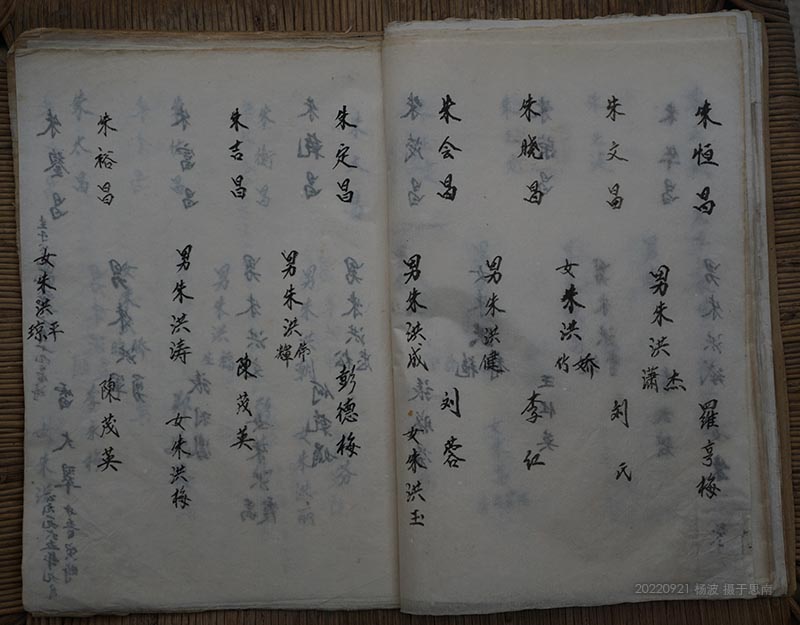 朱恒昌 羅亨梅
男朱洪杰
潇
朱文昌 刘氏
女朱洪娇
朱晓昌 李红
男朱洪健
朱会昌 刘蓉
男朱洪成 女朱洪玉
朱定昌 彭德梅
男朱洪伟
輝
朱吉昌 陳茂英
男朱洪涛 女朱洪梅
朱裕昌 陳茂英
女朱洪平
琼
20220921 杨波 摄于思南